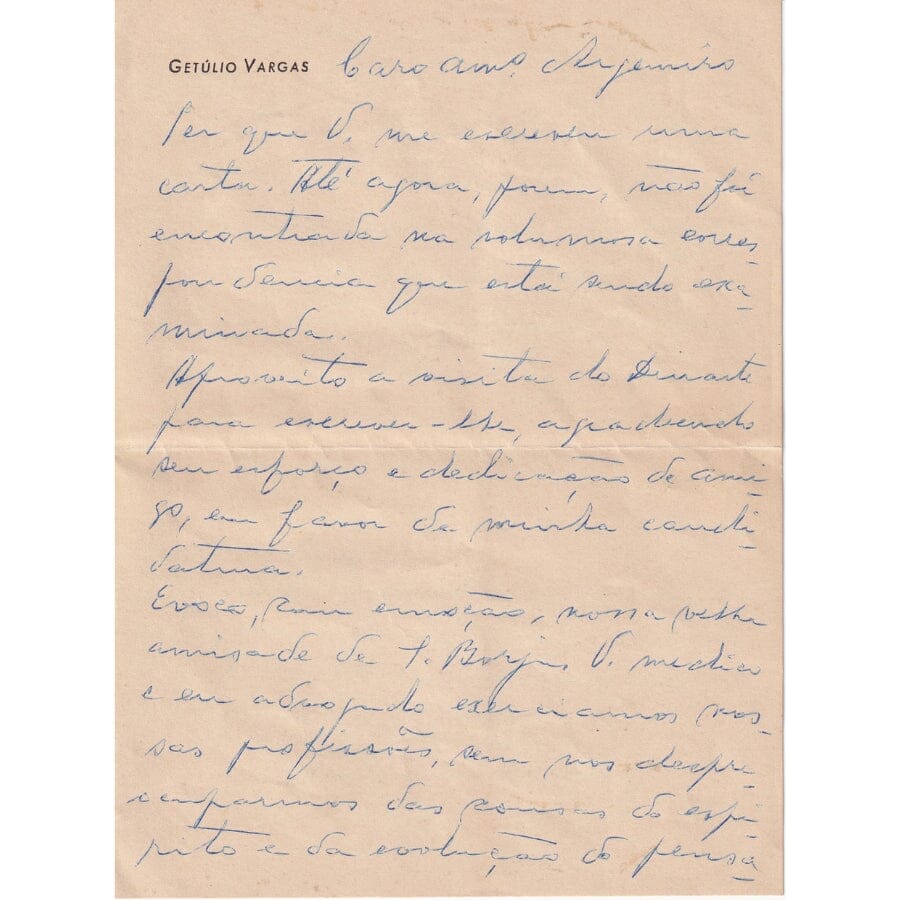 GETÚLIO VARGAS Caro am.º Argemiro
Per que V. me escreveu uma
carta. Até agora, porem, não foi
encontrada na volumosa corres-
pondencia que está sendo exa-
minada.
Aproveito a visita do Dinarte
para escrever-lhe, agradecendo
seu esforço e dedicação de ami-
go, em favor da minha candi-
datura.
Evoco, com emoção, nossa velha
amisade de S. Borja. V. medico
e eu advogado exerciamos nos-
sas profissões, sem nos despre-
ocuparmos das cousas do espi-
rito e da evolução do pensa-